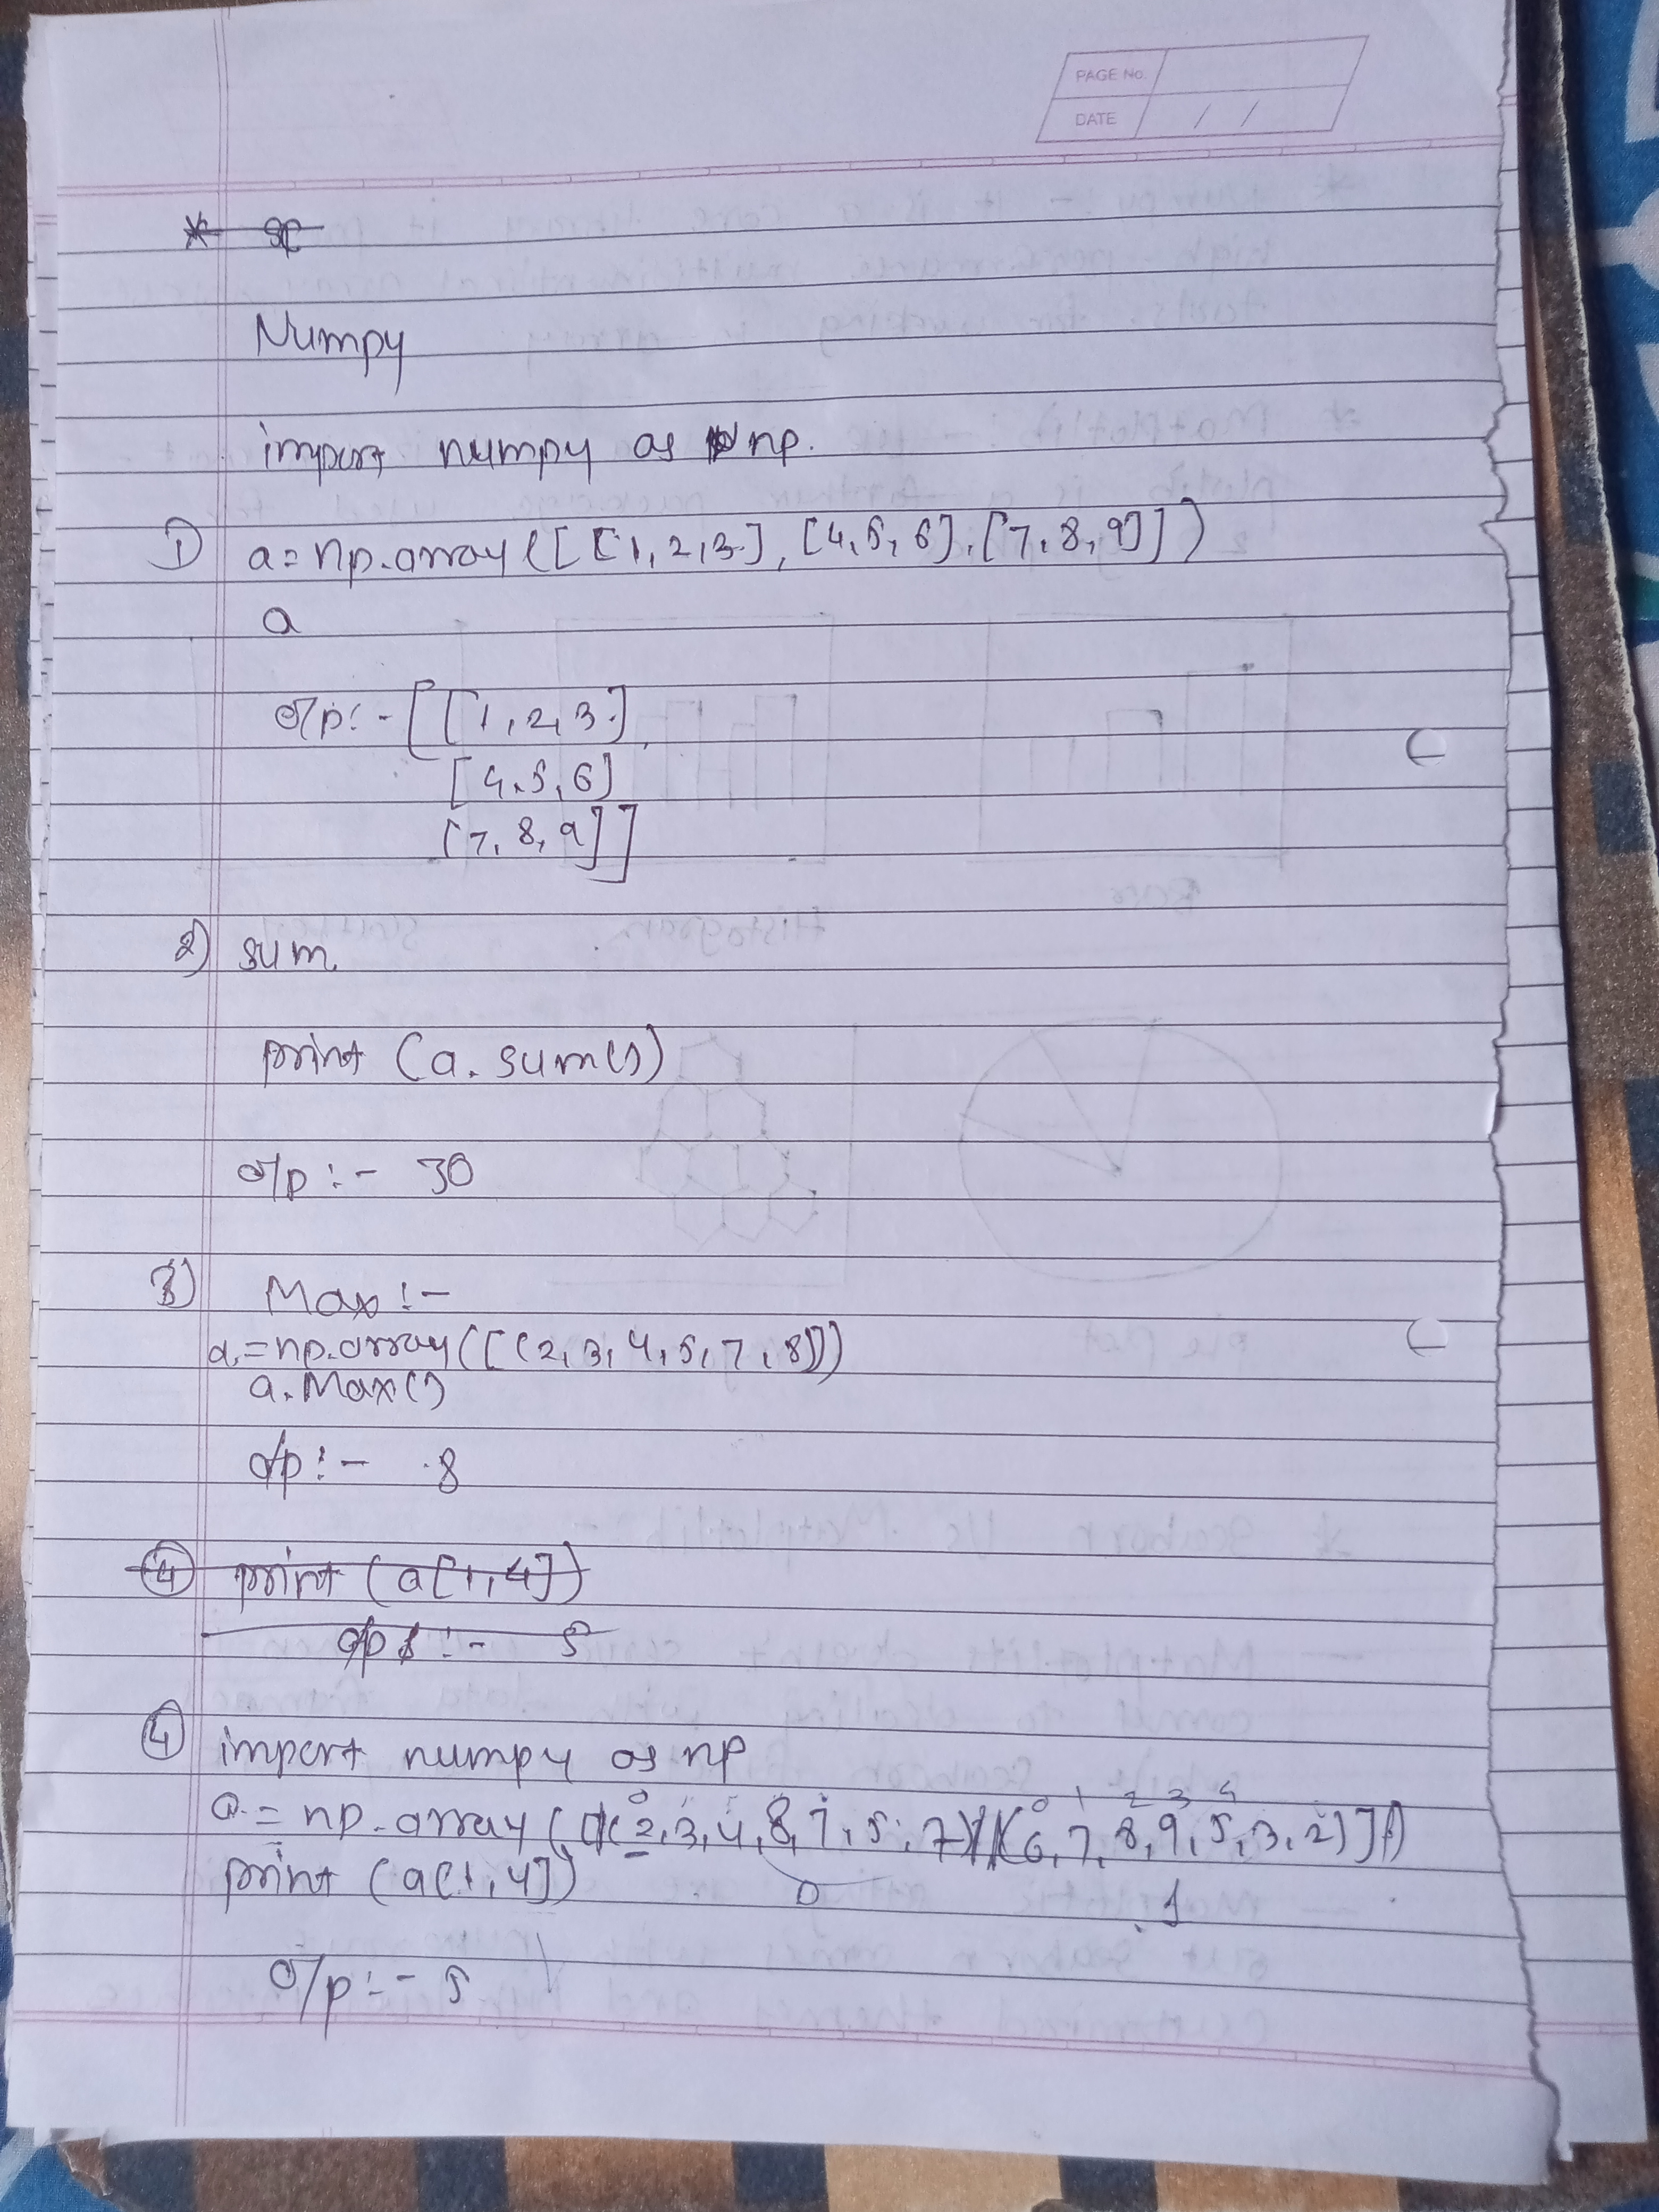 PAGE No.
DATE / /
Numpy
import numpy as np.
1) a = np.array([[1,2,3.], [4,5,6],[7,8,9]])
a
o/p:- [[1,2,3.],
[4,5,6]
[7,8,9]]
2) sum.
print (a. sum())
o/p :- 30
3) Max :-
a.=np.array([(2,3,4,5,7,8)])
a.Max()
o/p :- 8
4 print (a[1,4])
o/p :- 5
4 import numpy as np
0 0 1 2 3 4
a = np.array([(2,3,4,8,7,5,7),(6,7,8,9,5,3,2)])
print (a[1,4])
0 1
o/p :- 5